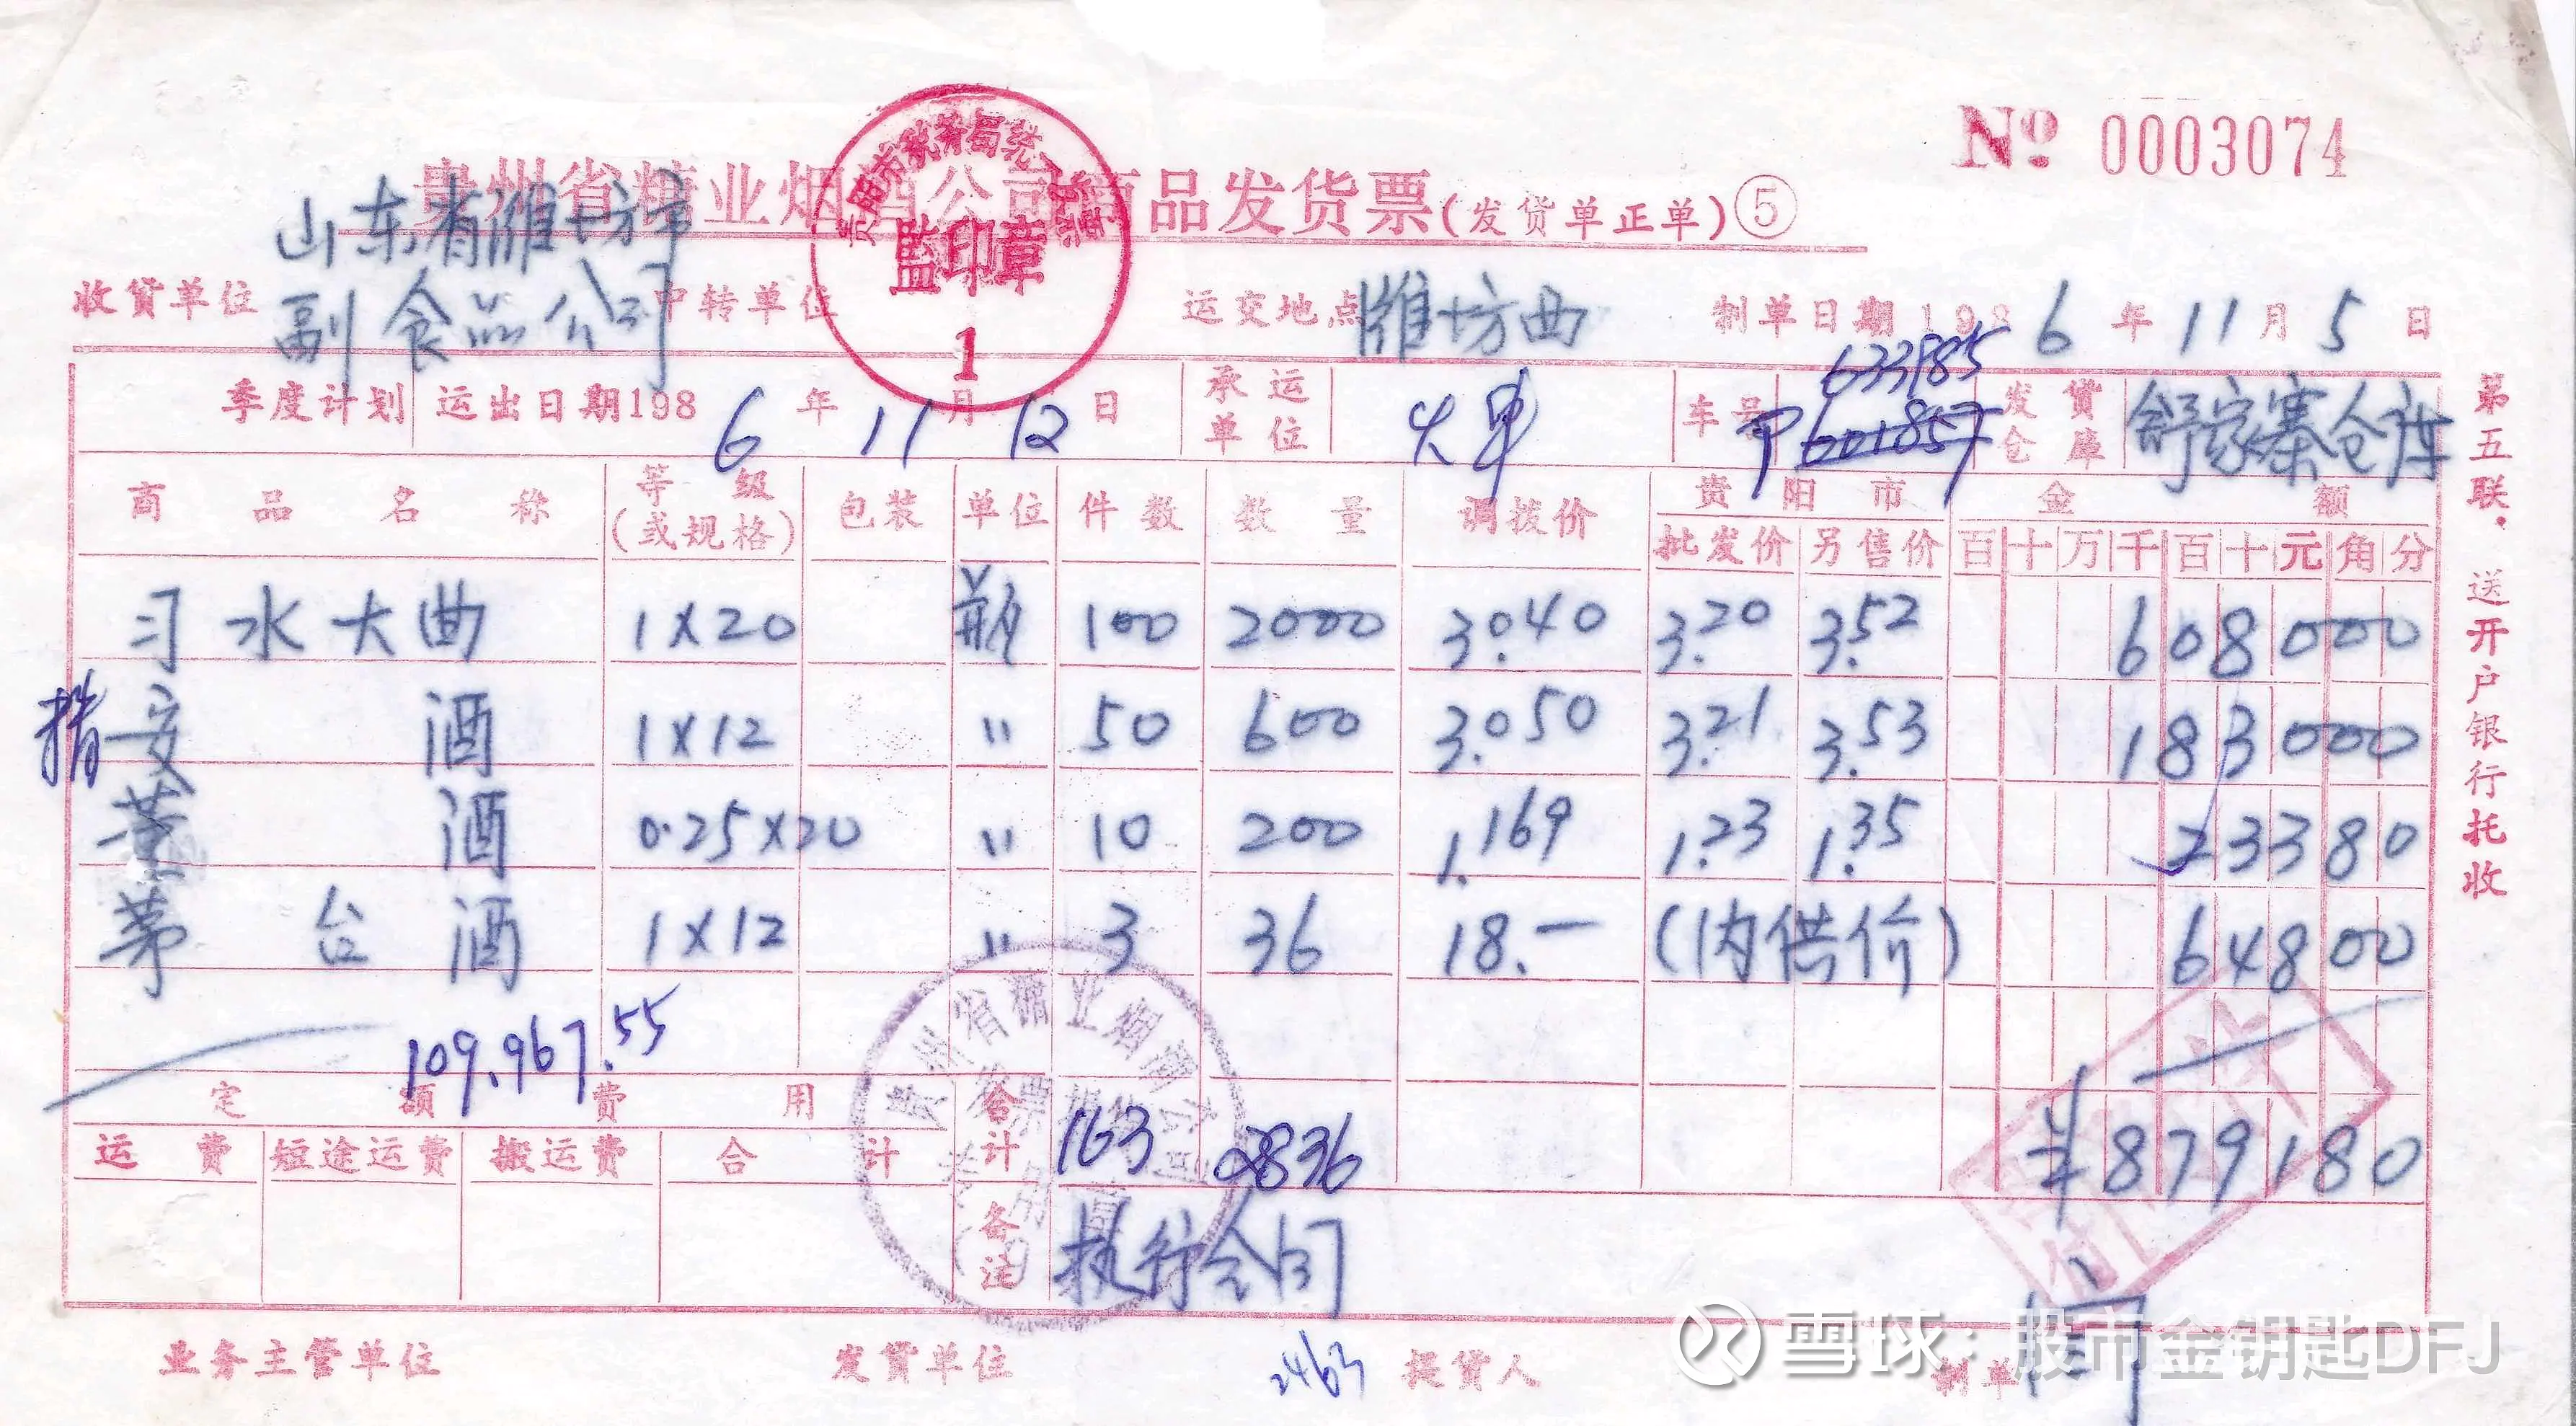 № 0003074
贵州省糖业烟酒公司商品发货票(发货单正单)⑤
贵阳市税务局
監印章
1
收货单位 山东省潍坊市副食品公司 中转单位 运交地点 潍坊西 制单日期 1986年11月5日
季度计划 运出日期1986年11月12日 承运单位 火车 车号 633185 发货仓库 舒家寨仓库
商品名称 等级(或规格) 包装 单位 件数 数量 调拨价 贵阳市 批发价 另售价 金额 百十万千百十元角分
习水大曲 1×20 瓶 100 2000 3.040 3.20 3.52 608000
安酒 1×12 〃 50 600 3.050 3.21 3.53 183000
董酒 0.25×20 〃 10 200 1.169 1.23 1.35 23380
茅台酒 1×12 〃 3 36 18.— (内供价) 64800
109.967.55
定额费用 合计 163 2836 ¥879180
运费 短途运费 搬运费 合计
备注 执行合同
贵州省糖业烟酒公司
业务主管单位 发货单位 2463 提货人 制单
第五联.送开户银行托收
雪球:股市金钥匙DFJ